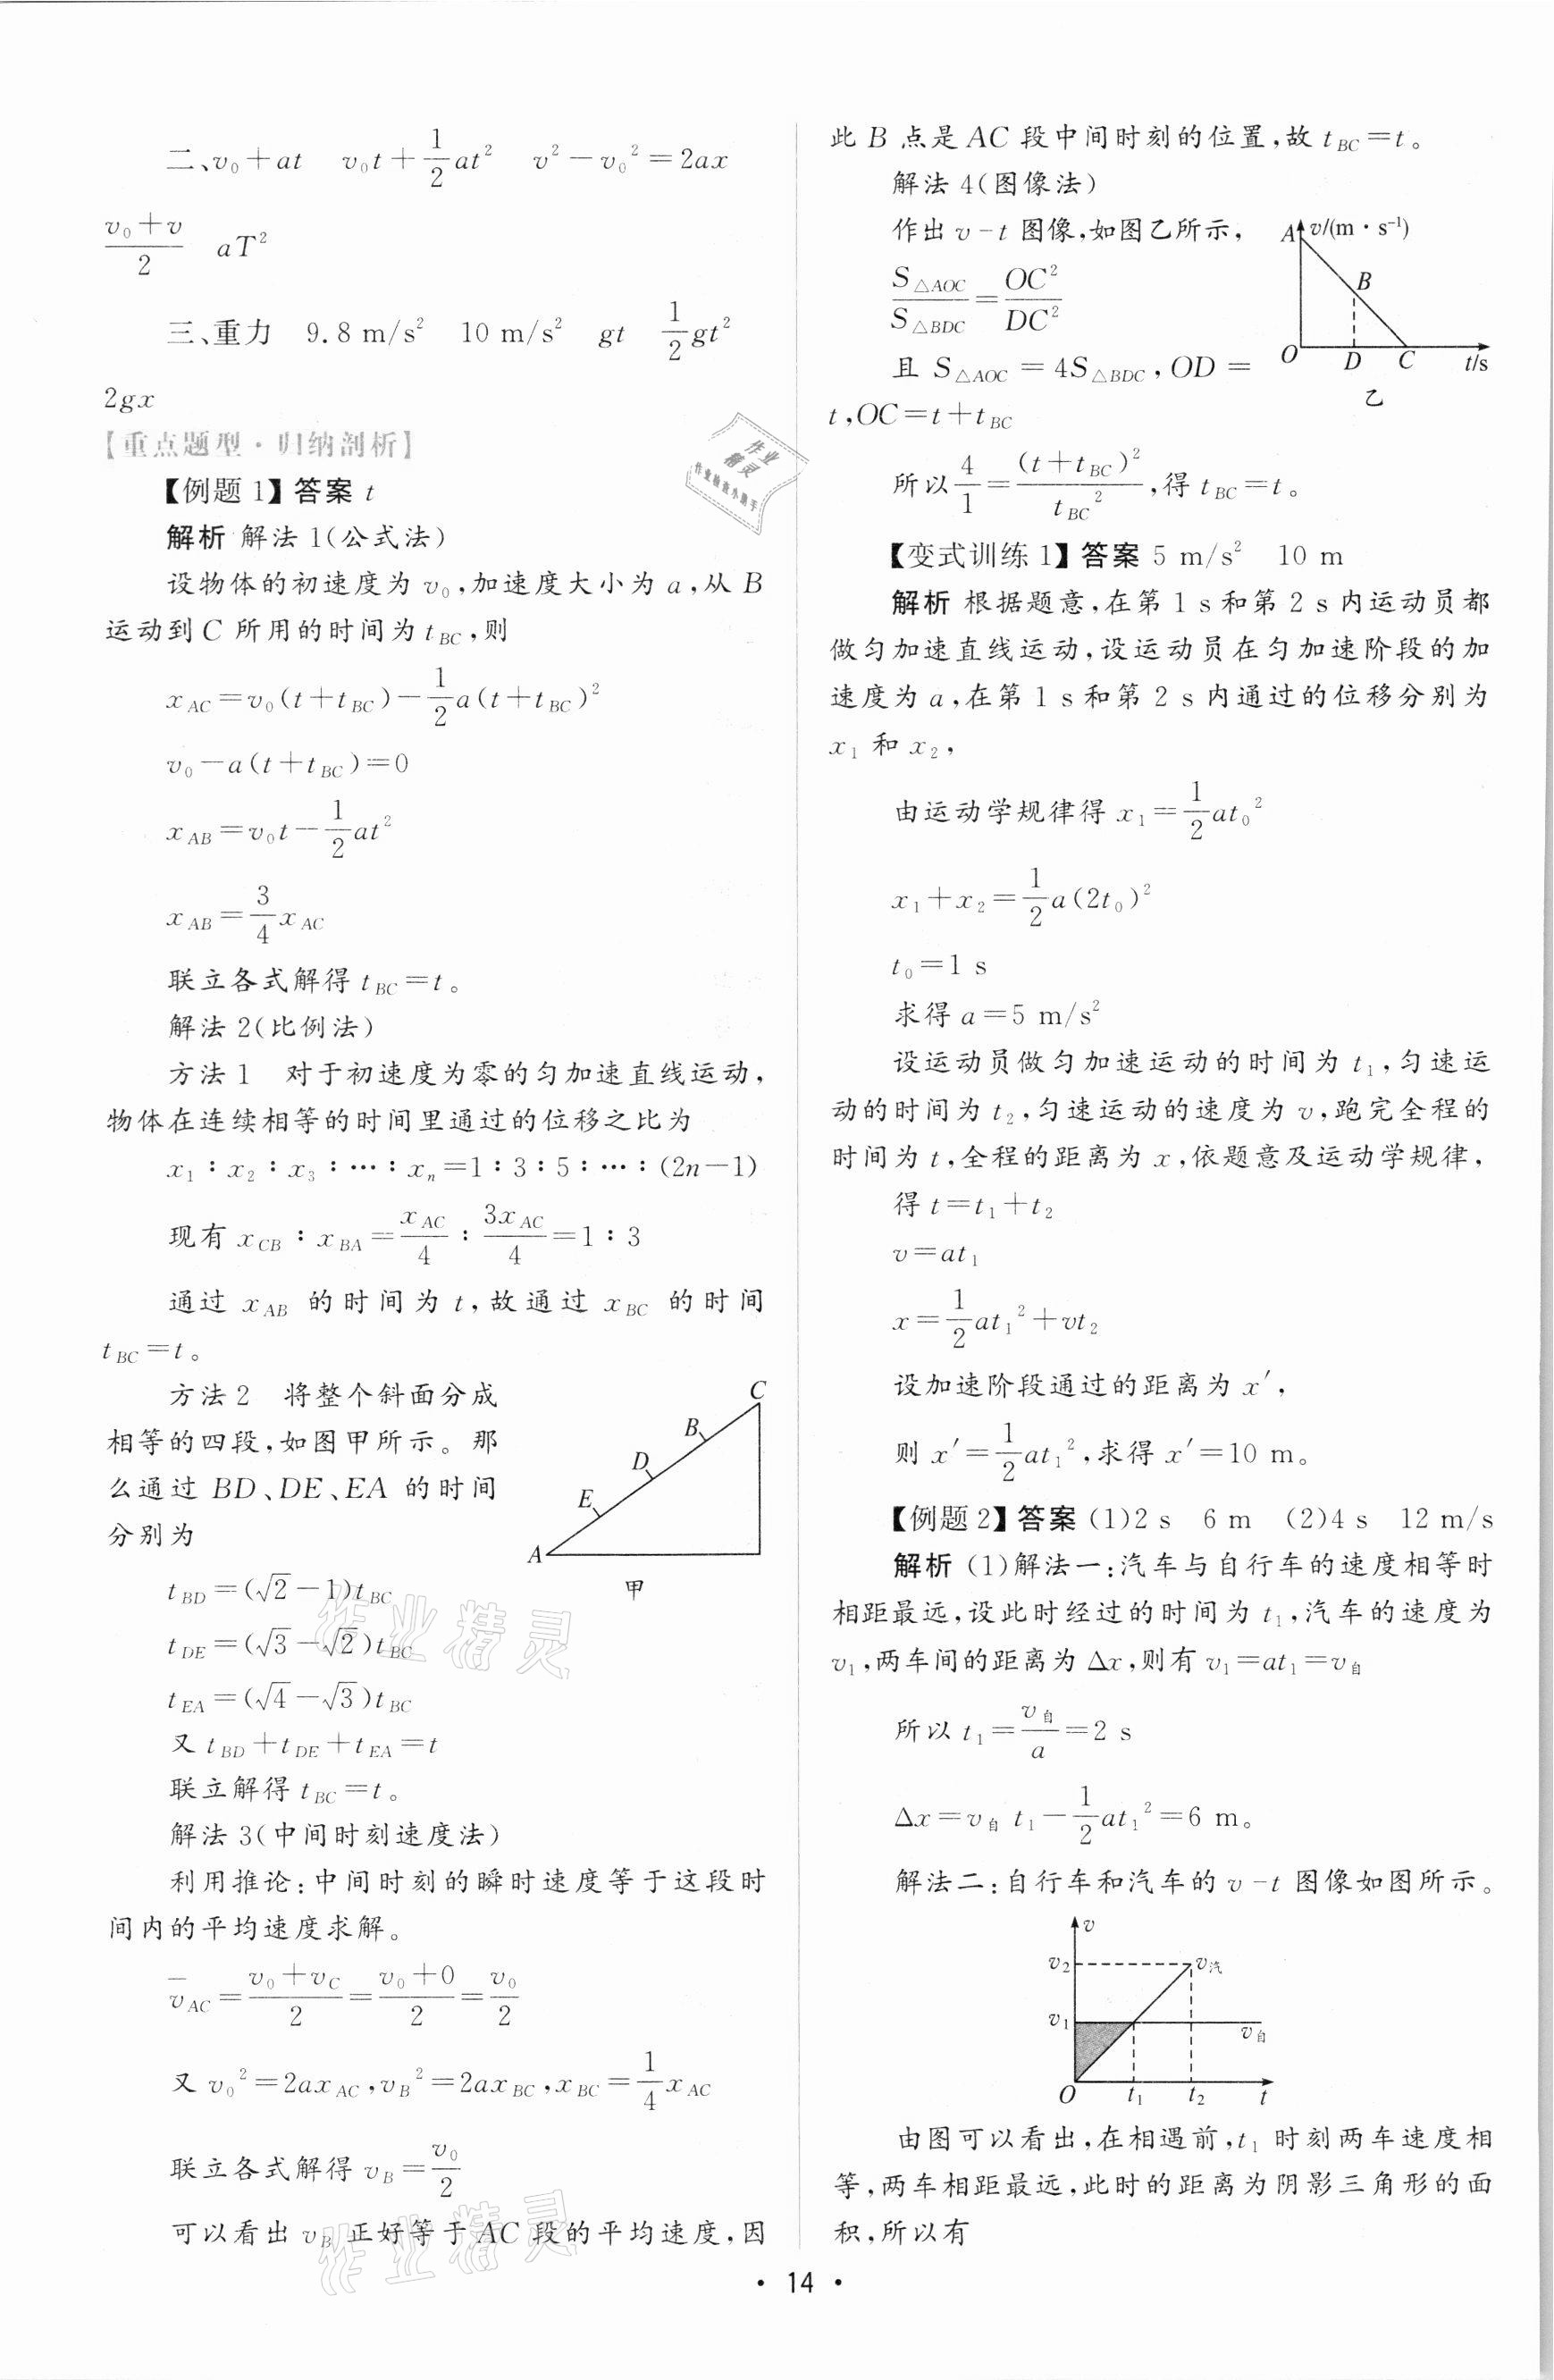 二、v₀+at　v₀t+\frac{1}{2}at²　v²−v₀²=2ax
\frac{v₀+v}{2}　aT²
三、重力　9.8 m/s²　10 m/s²　gt　\frac{1}{2}gt²
2gx
【重点题型·归纳剖析】
【例题1】答案 t
解析 解法1(公式法)
设物体的初速度为 v₀,加速度大小为 a,从 B
运动到 C 所用的时间为 t_{BC},则
x_{AC}=v₀(t+t_{BC})−\frac{1}{2}a(t+t_{BC})²
v₀−a(t+t_{BC})=0
x_{AB}=v₀t−\frac{1}{2}at²
x_{AB}=\frac{3}{4}x_{AC}
联立各式解得 t_{BC}=t。
解法2(比例法)
方法1　对于初速度为零的匀加速直线运动,
物体在连续相等的时间里通过的位移之比为
x₁∶x₂∶x₃∶…∶xₙ=1∶3∶5∶…∶(2n−1)
现有 x_{CB}∶x_{BA}=\frac{x_{AC}}{4}∶\frac{3x_{AC}}{4}=1∶3
通过 x_{AB} 的时间为 t,故通过 x_{BC} 的时间
t_{BC}=t。
方法2　将整个斜面分成
相等的四段,如图甲所示。那
么通过 BD、DE、EA 的时间
分别为
C
B
D
E
A
甲
t_{BD}=(√2−1)t_{BC}
t_{DE}=(√3−√2)t_{BC}
t_{EA}=(√4−√3)t_{BC}
又 t_{BD}+t_{DE}+t_{EA}=t
联立解得 t_{BC}=t。
解法3(中间时刻速度法)
利用推论:中间时刻的瞬时速度等于这段时
间内的平均速度求解。
\overline{v}_{AC}=\frac{v₀+v_C}{2}=\frac{v₀+0}{2}=\frac{v₀}{2}
又 v₀²=2ax_{AC},v_B²=2ax_{BC},x_{BC}=\frac{1}{4}x_{AC}
联立各式解得 v_B=\frac{v₀}{2}
可以看出 v_B 正好等于 AC 段的平均速度,因
此 B 点是 AC 段中间时刻的位置,故 t_{BC}=t。
解法4(图像法)
作出 v-t 图像,如图乙所示,
\frac{S_{△AOC}}{S_{△BDC}}=\frac{OC²}{DC²}
且 S_{△AOC}=4S_{△BDC},OD=
t,OC=t+t_{BC}
A v/(m·s⁻¹)
B
O D C t/s
乙
所以\frac{4}{1}=\frac{(t+t_{BC})²}{t_{BC}²},得 t_{BC}=t。
【变式训练1】答案 5 m/s²　10 m
解析 根据题意,在第1 s和第2 s内运动员都
做匀加速直线运动,设运动员在匀加速阶段的加
速度为 a,在第1 s和第2 s内通过的位移分别为
x₁ 和 x₂,
由运动学规律得 x₁=\frac{1}{2}at₀²
x₁+x₂=\frac{1}{2}a(2t₀)²
t₀=1 s
求得 a=5 m/s²
设运动员做匀加速运动的时间为 t₁,匀速运
动的时间为 t₂,匀速运动的速度为 v,跑完全程的
时间为 t,全程的距离为 x,依题意及运动学规律,
得 t=t₁+t₂
v=at₁
x=\frac{1}{2}at₁²+vt₂
设加速阶段通过的距离为 x′,
则 x′=\frac{1}{2}at₁²,求得 x′=10 m。
【例题2】答案 (1)2 s　6 m　(2)4 s　12 m/s
解析 (1)解法一:汽车与自行车的速度相等时
相距最远,设此时经过的时间为 t₁,汽车的速度为
v₁,两车间的距离为 Δx,则有 v₁=at₁=v_自
所以 t₁=\frac{v_自}{a}=2 s
Δx=v_自 t₁−\frac{1}{2}at₁²=6 m。
解法二:自行车和汽车的 v-t 图像如图所示。
v
v₂ v_汽
v₁ v_自
O t₁ t₂ t
由图可以看出,在相遇前,t₁ 时刻两车速度相
等,两车相距最远,此时的距离为阴影三角形的面
积,所以有
·14·
作业精灵
作业精灵
作业
精灵
作业检查小助手